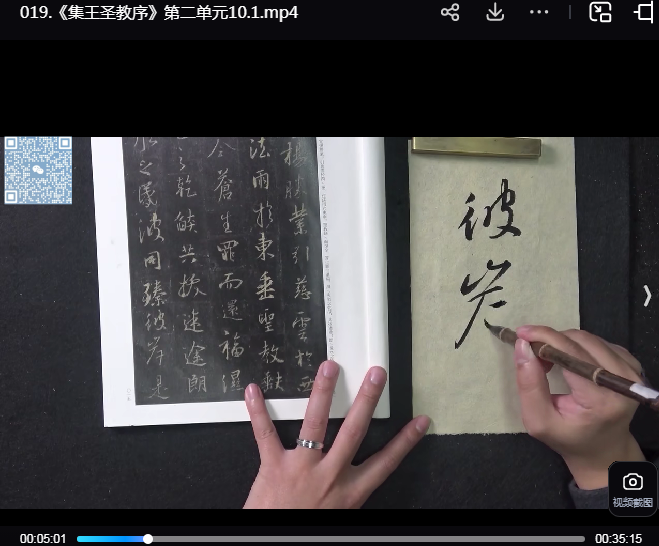 019.《集王圣教序》第二单元10.1.mp4
揚勝業引慈雲於西
法雨於東垂聖教缺
蒼生罪而還福濕
之乾焰共拔迷途朗
之昏波同臻彼岸是
彼岸
视频截图
00:05:01
00:35:15